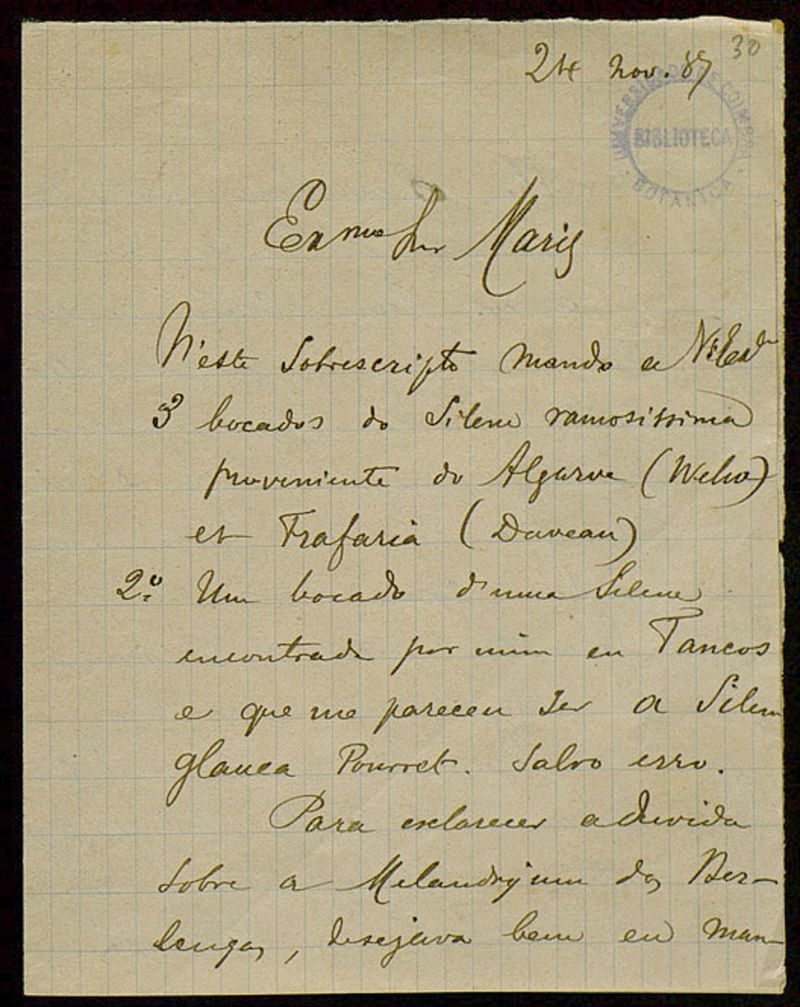 30
24 nov. 87
UNIVERSIDADE DE COIMBRA
BIBLIOTECA
BOTANICA
Exmo Snr Mariz
N'este sobrescripto mando a V. Exa
3 bocados do Silene ramosissima
proveniente do Algarve (Welw)
et Trafaria (Daveau)
2.º Um bocado d'uma Silene
encontrada por mim en Tancos
e que me pareceu ser a Silene
glauca Pourret. Salvo erro.
Para esclarecer a duvida
sobre a Melandryum das Ber-
lengas, desejava bem eu man-